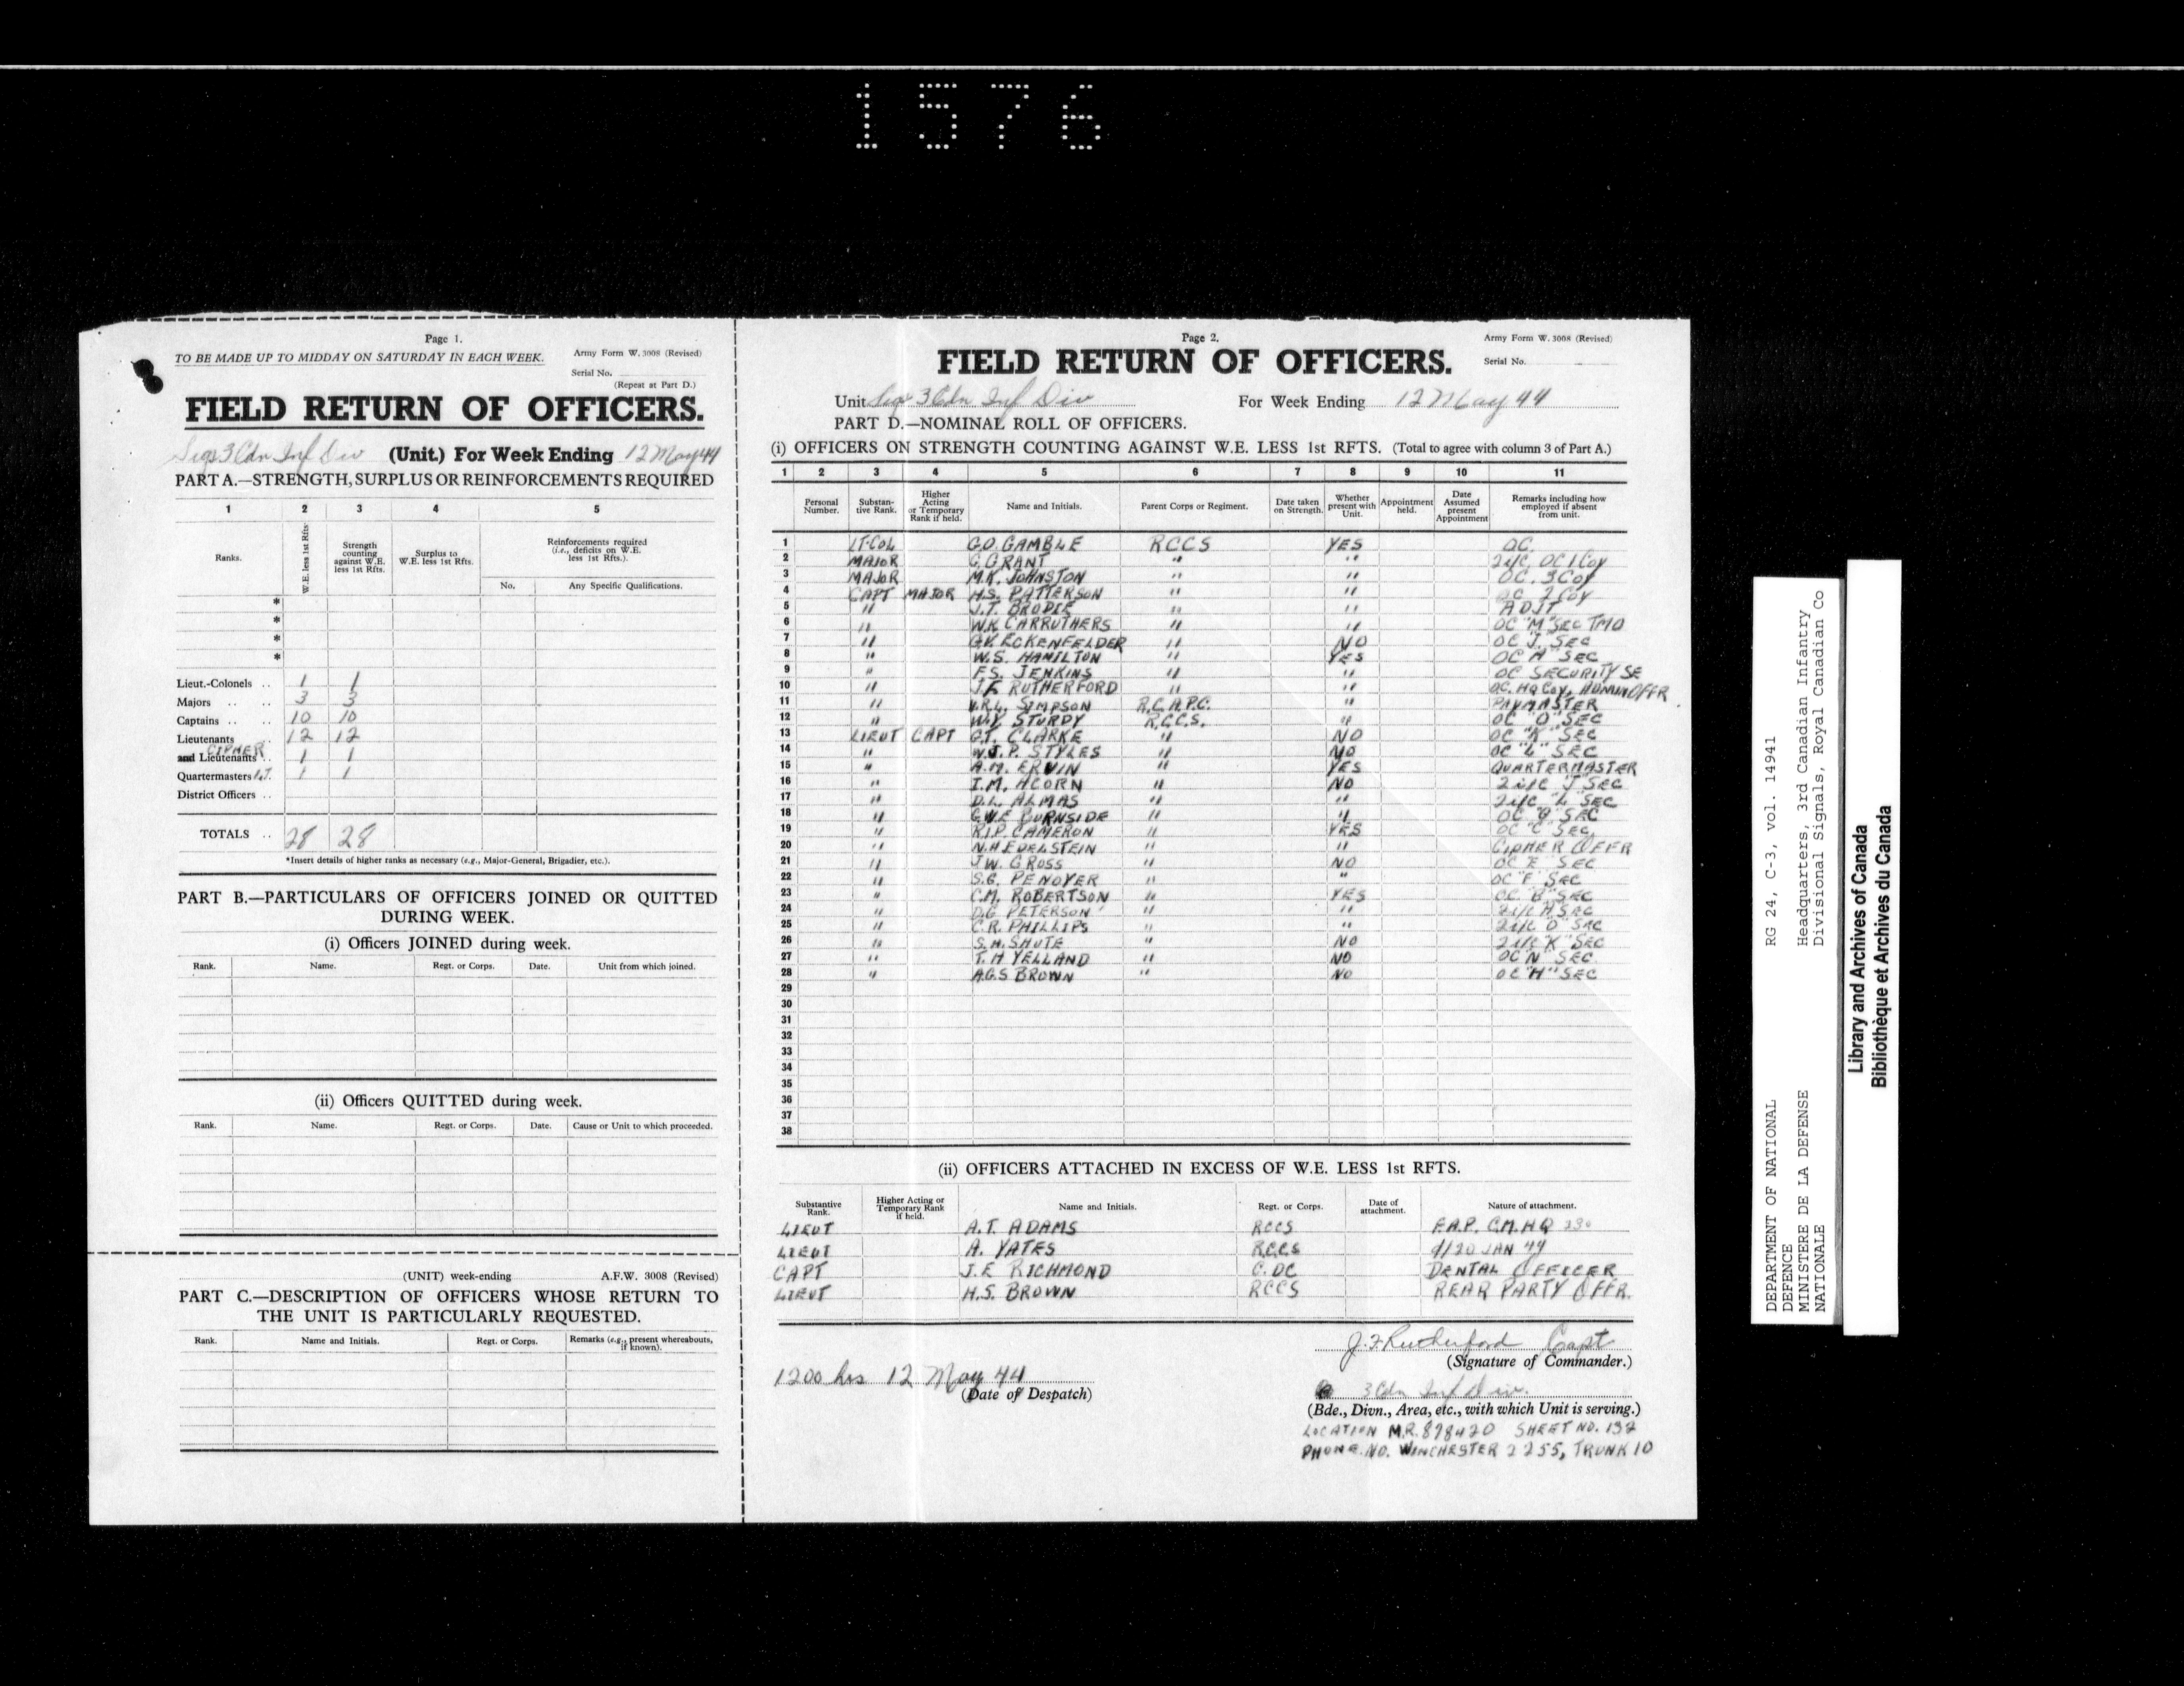 1576
Page 1.
TO BE MADE UP TO MIDDAY ON SATURDAY IN EACH WEEK.
Army Form W. 3008 (Revised)
Serial No.
(Repeat at Part D.)
FIELD RETURN OF OFFICERS.
Sigs 3 Cdn Inf Div (Unit.) For Week Ending 12 May 44
PART A.—STRENGTH, SURPLUS OR REINFORCEMENTS REQUIRED
1 2 3 4 5
Ranks. W.E. less 1st Rfts. Strength counting against W.E. less 1st Rfts. Surplus to W.E. less 1st Rfts. Reinforcements required (i.e., deficits on W.E. less 1st Rfts.).
No. Any Specific Qualifications.
*
*
*
*
Lieut.-Colonels .. 1 1
Majors .. .. 3 3
Captains .. .. 10 10
Lieutenants 12 12
CIPHER
and Lieutenants .. 1 1
Quartermasters 1 1
District Officers ..
TOTALS .. 28 28
*Insert details of higher ranks as necessary (e.g., Major-General, Brigadier, etc.).
PART B.—PARTICULARS OF OFFICERS JOINED OR QUITTED
DURING WEEK.
(i) Officers JOINED during week.
Rank. Name. Regt. or Corps. Date. Unit from which joined.
(ii) Officers QUITTED during week.
Rank. Name. Regt. or Corps. Date. Cause or Unit to which proceeded.
(UNIT) week-ending A.F.W. 3008 (Revised)
PART C.—DESCRIPTION OF OFFICERS WHOSE RETURN TO
THE UNIT IS PARTICULARLY REQUESTED.
Rank. Name and Initials. Regt. or Corps. Remarks (e.g., present whereabouts, if known).
Page 2.
Army Form W. 3008 (Revised)
FIELD RETURN OF OFFICERS.
Serial No.
Unit Sigs 3 Cdn Inf Div For Week Ending 12 May 44
PART D.—NOMINAL ROLL OF OFFICERS.
(i) OFFICERS ON STRENGTH COUNTING AGAINST W.E. LESS 1st RFTS. (Total to agree with column 3 of Part A.)
1 2 3 4 5 6 7 8 9 10 11
Personal Number. Substantive Rank. Higher Acting or Temporary Rank if held. Name and Initials. Parent Corps or Regiment. Date taken on Strength. Whether present with Unit. Appointment held. Date Assumed present Appointment Remarks including how employed if absent from unit.
1 LT-COL G.O. GAMBLE RCCS YES OC.
2 MAJOR G. GRANT " " 2i/c, OC 1 Coy
3 MAJOR M.K. JOHNSTON " " OC. 3 Coy
4 CAPT MAJOR H.S. PATTERSON " " OC 2 Coy
5 " J.T. BRODIE " " ADJT
6 " W.K. CARRUTHERS " " OC "M" SEC TMO
7 " G.V. ECKENFELDER " NO OC "J" SEC
8 " W.S. HAMILTON " YES OC "A" SEC
9 " F.S. JENKINS " " OC SECURITY SE
10 " J.F. RUTHERFORD " " OC. HQ Coy, ADMIN OFFR
11 " V.R.L. SIMPSON R.C.A.P.C. " PAYMASTER
12 " W.Y. STURDY R.C.C.S. " OC "O" SEC
13 LIEUT CAPT G.T. CLARKE " NO OC "K" SEC
14 " W.J.P. STYLES " NO OC "L" SEC
15 " A.M. ERVIN " YES QUARTERMASTER
16 " I.M. ACORN " NO 2i/c "J" SEC
17 " D.L. ALMAS " " 2i/c "L" SEC
18 " G.W.E BURNSIDE " " OC "G" SEC
19 " R.I.P. CAMERON " YES OC "C" SEC.
20 " N.H EDELSTEIN " " CIPHER OFFR
21 " J.W. GROSS " NO OC "E" SEC
22 " S.G. PENOYER " " OC "F" SEC
23 " C.M. ROBERTSON " YES OC "B" SEC
24 " D.G. PETERSON " " 2i/c "A" SEC
25 " C.R. PHILLIPS " " 2i/c "O" SEC
26 " S.H. SHUTE " NO 2i/c "K" SEC
27 " T.H YELLAND " NO OC "N" SEC
28 " A.G.S BROWN " NO OC "H" SEC
29
30
31
32
33
34
35
36
37
38
(ii) OFFICERS ATTACHED IN EXCESS OF W.E. LESS 1st RFTS.
Substantive Rank. Higher Acting or Temporary Rank if held. Name and Initials. Regt. or Corps. Date of attachment. Nature of attachment.
LIEUT A.T. ADAMS RCCS F.A.P. C.M.H.Q
LIEUT A. YATES R.C.C.S 20 JAN 44
CAPT J.E RICHMOND C.DC DENTAL OFFICER
LIEUT H.S. BROWN RCCS REAR PARTY OFFR.
J.F. Rutherford Capt
(Signature of Commander.)
1200 hrs 12 May 44
(Date of Despatch)
3 Cdn Inf Div.
(Bde., Divn., Area, etc., with which Unit is serving.)
LOCATION M.R. 898420 SHEET NO. 132
PHONE. NO. WINCHESTER 2255, TRUNK 10
DEPARTMENT OF NATIONAL RG 24, C-3, vol. 14941
DEFENCE
MINISTERE DE LA DEFENSE Headquarters, 3rd Canadian Infantry
NATIONALE Divisional Signals, Royal Canadian Co
Library and Archives of Canada
Bibliothèque et Archives du Canada